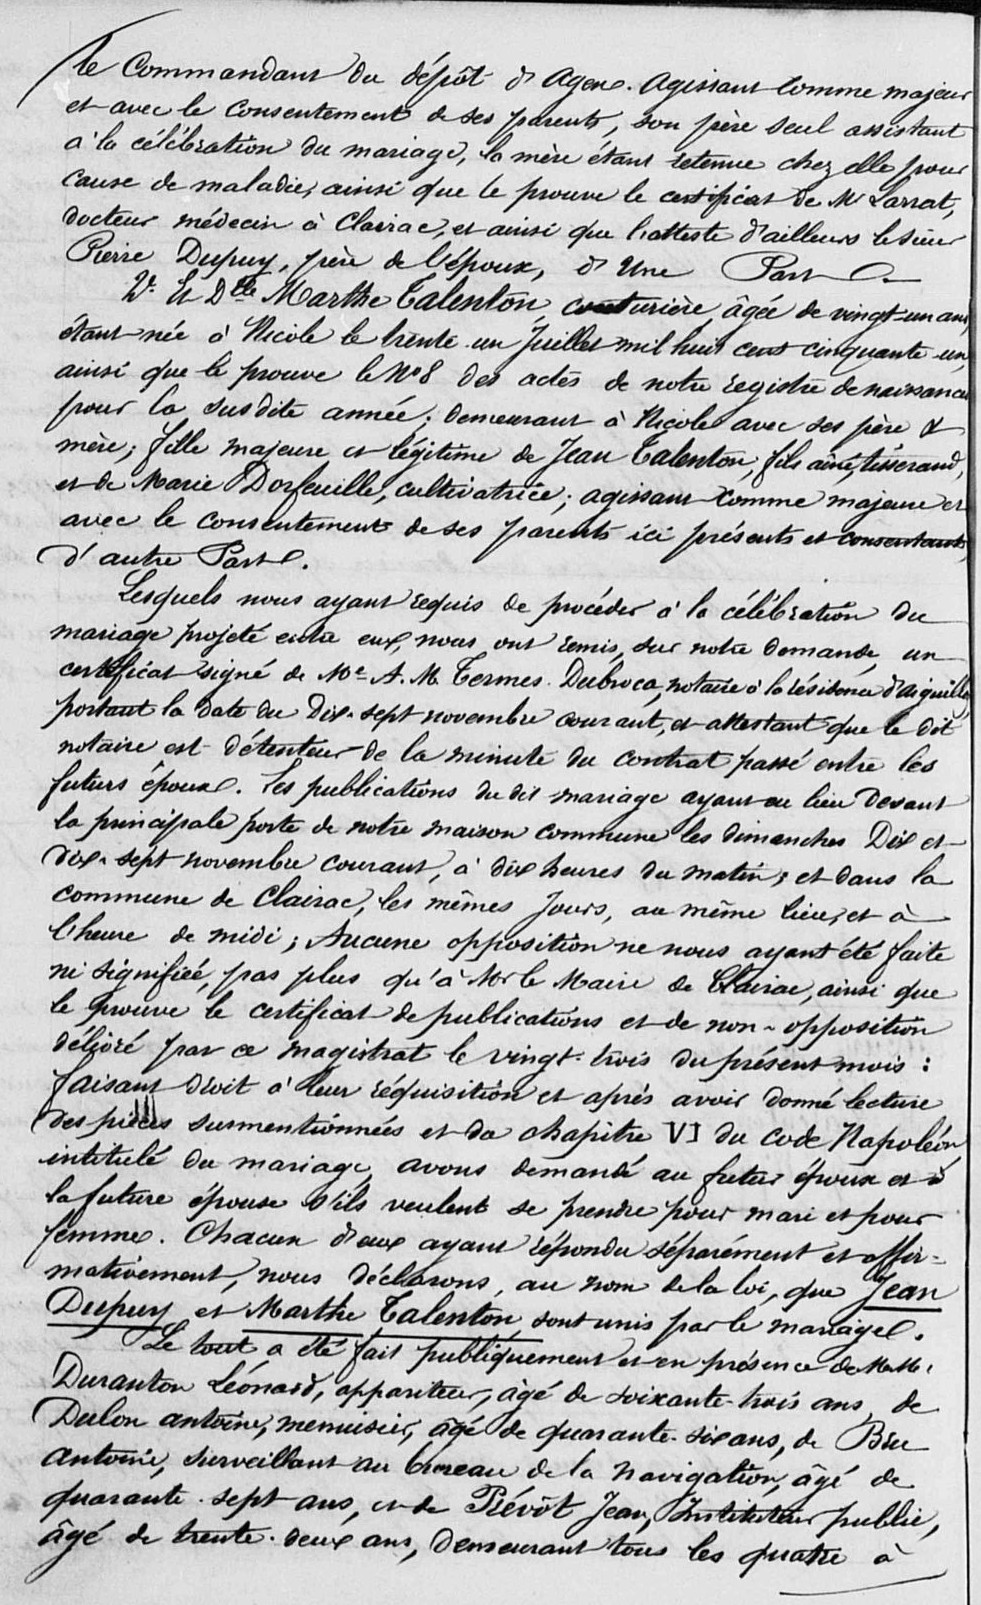 le Commandant du dépôt d'Agen. Agissant comme majeur
et avec le consentement de ses parents, son père seul assistant
à la célébration du mariage, la mère étant retenue chez elle pour
cause de maladie, ainsi que le prouve le certificat de Mr Larrat,
docteur médecin à Clairac, et ainsi que l'atteste d'ailleurs le sieur
Pierre Dupuy, père de l'époux, d'Une Part
2º Et Dlle Marthe Talenton, couturière, âgée de vingt-un ans,
étant née à Nicole le trente-un Juillet mil huit cent cinquante-un,
ainsi que le prouve le Nº 8 des actes de notre registre de naissances
pour la susdite année; demeurant à Nicole avec ses père &
mère; fille majeure et légitime de Jean Talenton, fils aîné, tisserand,
et de Marie Dorfeuille, cultivatrice; agissant comme majeure et
avec le consentement de ses parents ici présents et consentants,
d'autre Part.
Lesquels nous ayant requis de procéder à la célébration du
mariage projeté entre eux, nous ont remis, sur notre demande, un
certificat signé de Me A. M. Termes-Dubroca, notaire à la résidence d'Aiguillon,
portant la date du Dix-sept novembre courant, et attestant que le dit
notaire est détenteur de la minute du contrat passé entre les
futurs époux. Les publications du dit mariage ayant eu lieu devant
la principale porte de notre maison commune les dimanches Dix et
dix-sept novembre courant, à dix heures du matin; et dans la
commune de Clairac, les mêmes Jours, au même lieu, et à
l'heure de midi; Aucune opposition ne nous ayant été faite
ni signifiée, pas plus qu'à Mr le Maire de Clairac, ainsi que
le prouve le certificat de publications et de non-opposition
délivré par ce magistrat le vingt-trois du présent mois:
faisant droit à leur réquisition et après avoir donné lecture
des pièces surmentionnées et du chapitre VI du code Napoléon,
intitulé du mariage, avons demandé au futur époux et à
la future épouse s'ils veulent se prendre pour mari et pour
femme. Chacun d'eux ayant répondu séparément et affir-
mativement, nous déclarons, au nom de la loi, que Jean
Dupuy et Marthe Talenton sont unis par le mariage.
Le tout a été fait publiquement et en présence de MM.
Duranton Léonard, appariteur, âgé de soixante-trois ans, de
Dulon antoine, menuisier, âgé de quarante-six ans, de Bru
Antoine, surveillant au bureau de la navigation, âgé de
quarante-sept ans, et de Prévôt Jean, Instituteur public,
âgé de trente-deux ans, demeurant tous les quatre à